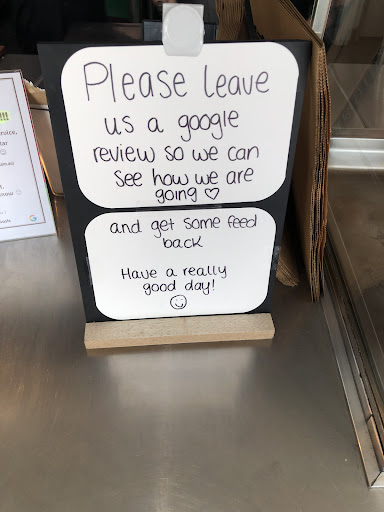 Please leave
us a google
review so we can
see how we are
going ♡
and get some feed
back
Have a really
good day!
☺